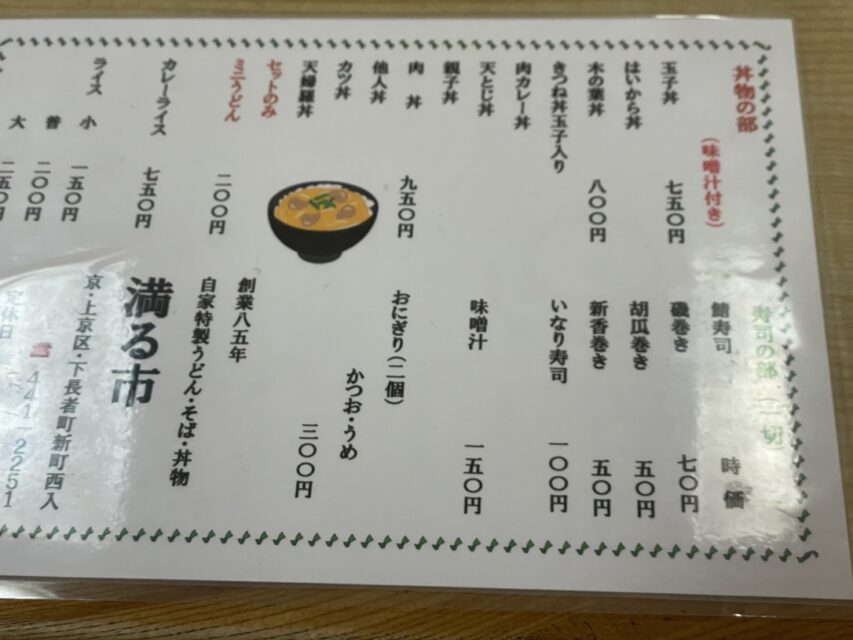 丼物の部
（味噌汁付き）
玉子丼 七五〇円
はいから丼
木の葉丼 八〇〇円
きつね丼玉子入り
肉カレー丼
天とじ丼
親子丼
肉丼 九五〇円
他人丼
カツ丼
天婦羅丼
セットのみ
ミニうどん 二〇〇円
カレーライス 七五〇円
ライス 小 一五〇円
普 二〇〇円
大 二五〇円
寿司の部（一切）
鯖寿司 時価
磯巻き 七〇円
胡瓜巻き 五〇円
新香巻き 五〇円
いなり寿司 一〇〇円
味噌汁 一五〇円
おにぎり（二個）
かつお・うめ
三〇〇円
創業八五年
自家特製うどん・そば・丼物
満る市
京・上京区・下長者町新町西入
☎441-2251
定休日